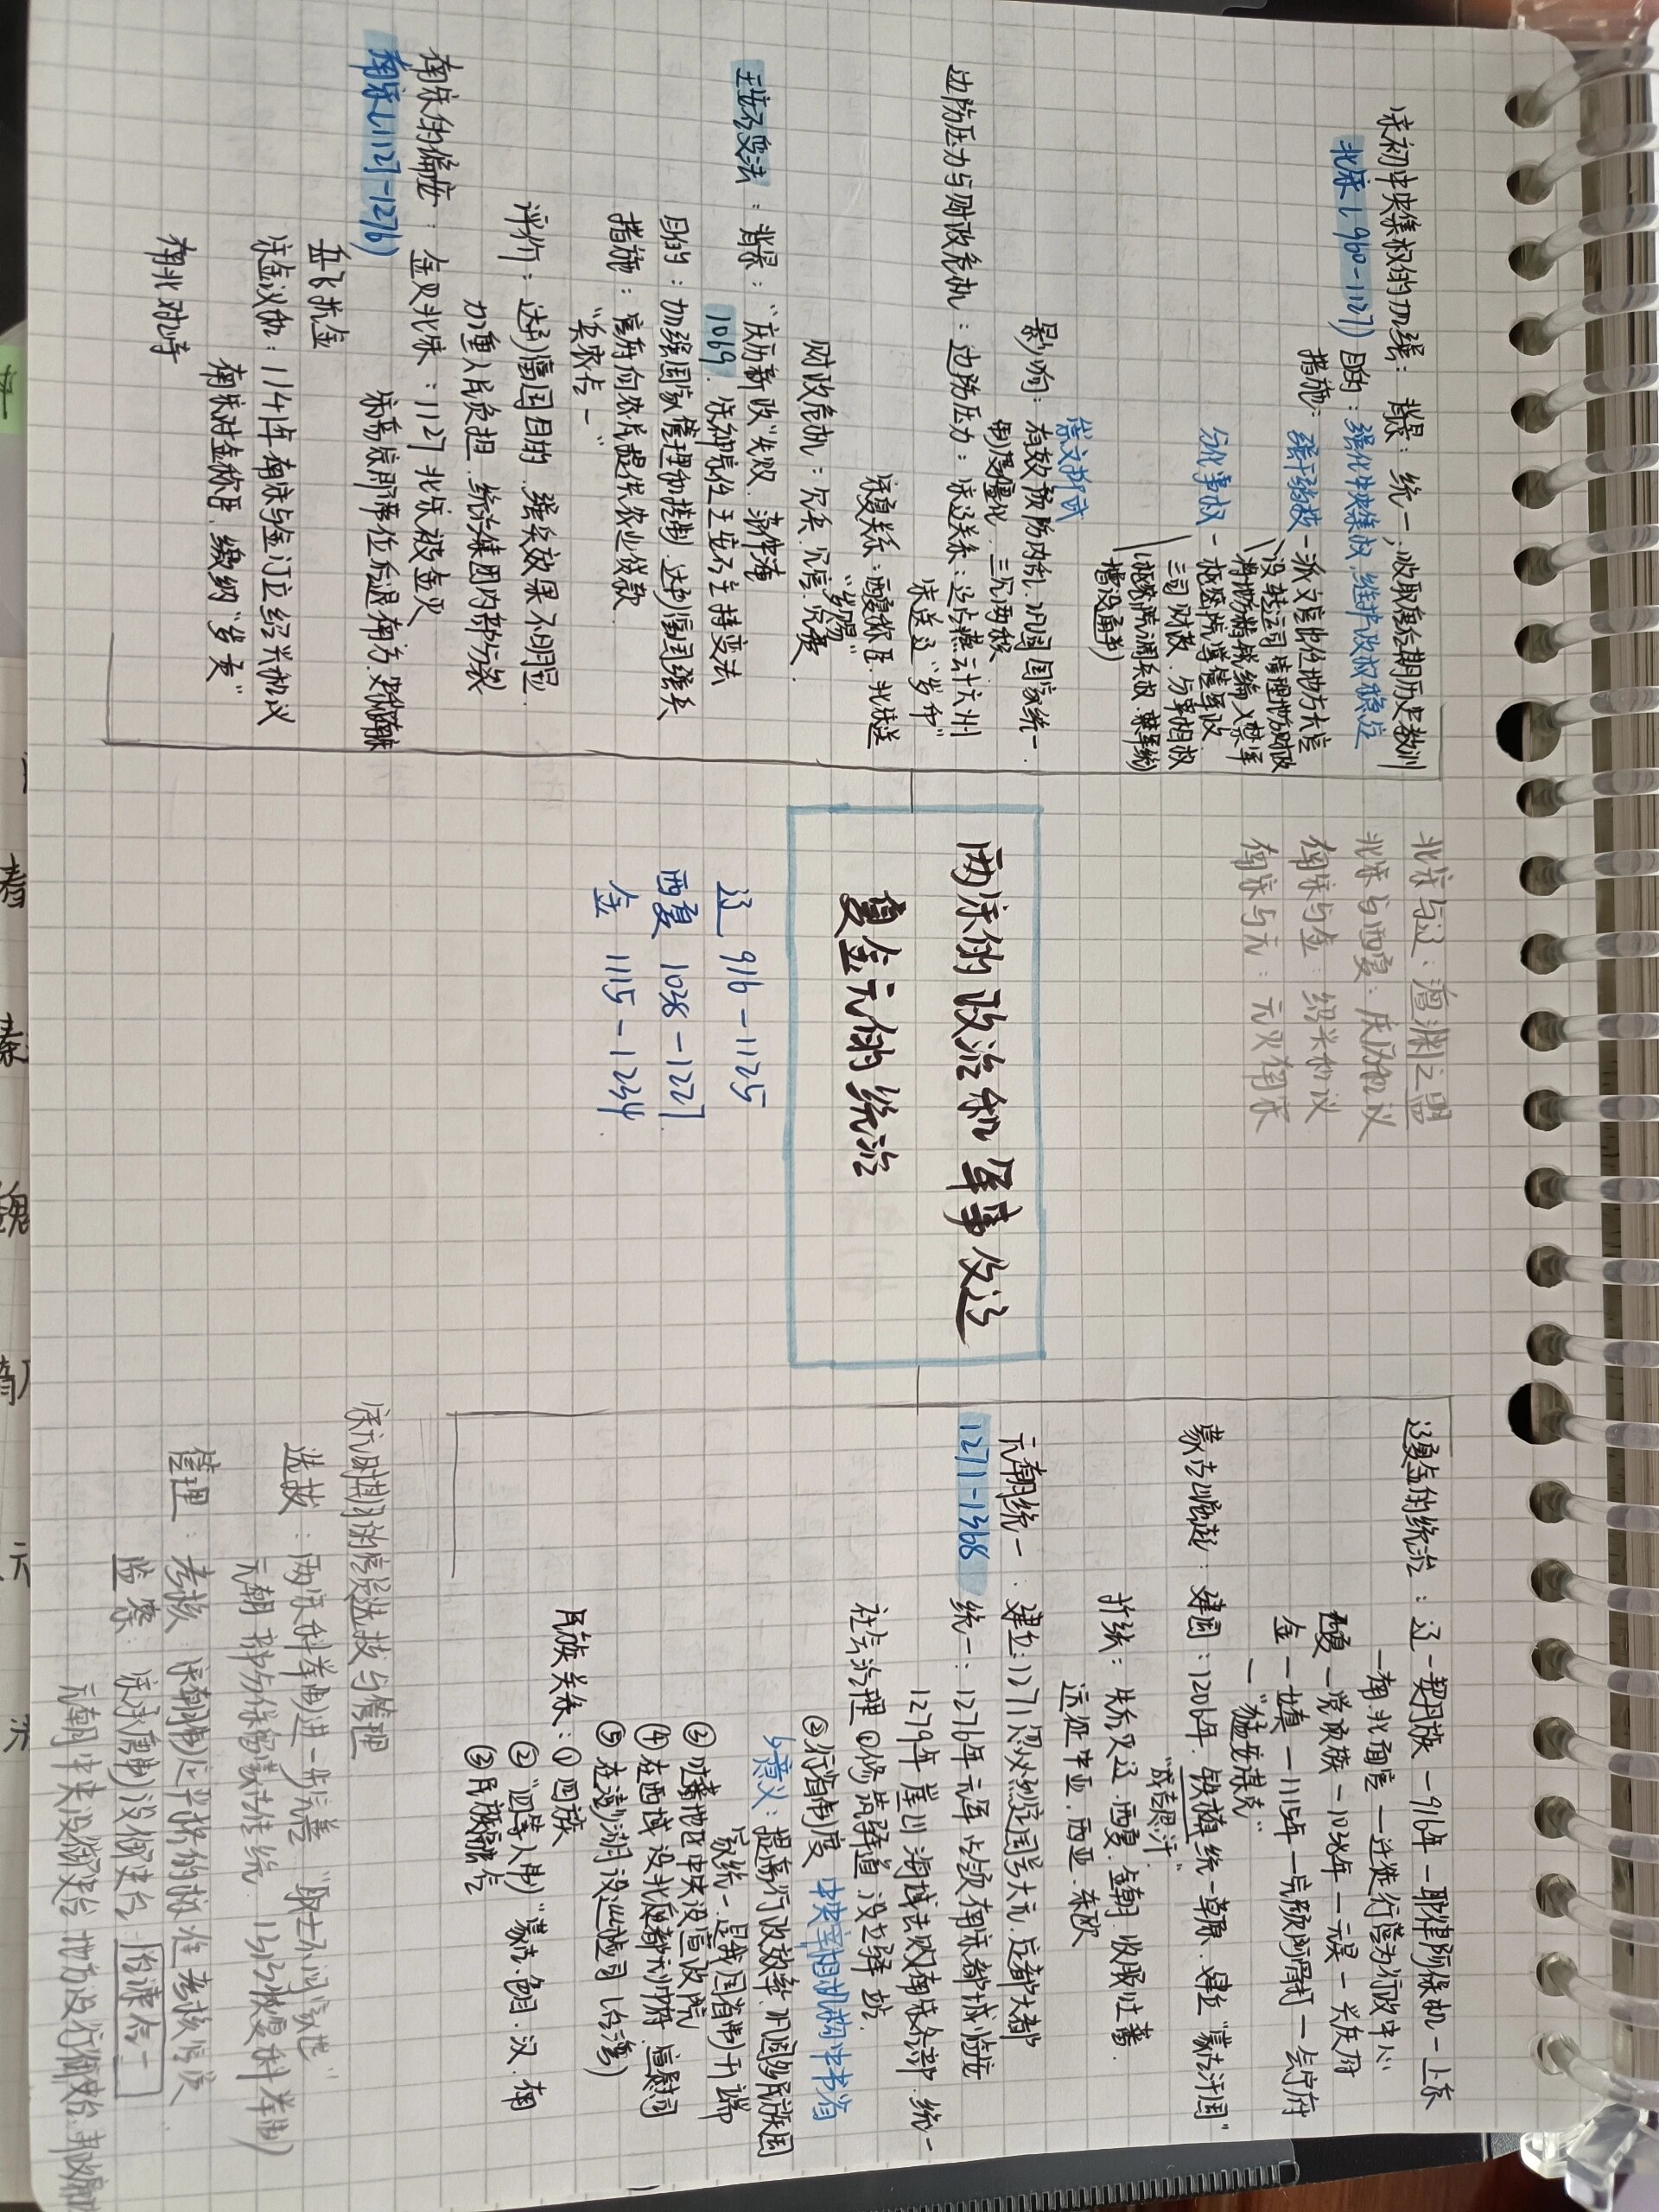 宋初中央集权的加强：背景：统一；吸取唐后期历史教训
北宋（960-1127）目的：强化中央集权，维护政权稳定
措施：强干弱枝－派文官出任地方长官
设转运司管理地方财政
将地方精锐编入禁军
分化事权－枢密院掌管军政
三司财政，分宰相权
（枢密院调兵权，禁军统）
增设通判
崇文抑武
影响：有效预防内乱，巩固国家统一
制度僵化，三冗两积
边防压力与财政危机：边防压力：宋辽关系：辽占燕云十六州
宋送辽“岁币”
宋夏关系：西夏称臣，北宋送
“岁赐”
财政危机：冗兵，冗官，冗费
王安石变法：背景：“庆历新政”失败，
1069，宋神宗任王安石主持变法
目的：加强国家管理和控制，达到富国强兵
措施：官府向农民提供农业贷款
评价：达到富国目的，强兵效果不明显
加重人民负担，统治集团内部分裂
南宋的偏安：金灭北宋：1127北宋被金灭
南宋（1127-1276）
宋高宗即帝位后退南方，定都临安
岳飞抗金
宋金议和：1141年南宋与金订立绍兴和议
南宋对金称臣，缴纳“岁贡”
南北对峙
北宋与辽：澶渊之盟
北宋与西夏：庆历和议
南宋与金：绍兴和议
南宋与元：元灭南宋
两宋的政治和军事及辽
夏金元的统治
辽 916-1125
西夏 1038-1227
金 1115-1234
辽夏金的统治：辽－契丹族－916年－耶律阿保机－上京
－南北面官－
西夏－党项族－1038年－元昊－兴庆府
金－女真－1115年－完颜阿骨打－会宁府
－“猛安谋克”
蒙古崛起：建国：1206年，铁木真统一草原，建立“蒙古汗国”
“成吉思汗”
扩张：先后灭辽、西夏、金朝，收服吐蕃
远征中亚、西亚、东欧
元朝统一：建立：1271忽必烈定国号大元，定都大都
1271-1368 统一：1276年元军占领南宋都城临安
1279年崖山海域击败南宋余部，统一
社会治理①修筑驿道，设立驿站
②行省制度 中央宰相机构中书省
意义：提高行政效率，巩固多民族国
家统一，是我国省制开端
③吐蕃地区中央设宣政院
④在西域设北庭都元帅府、宣慰司
⑤在澎湖设巡检司（台湾）
民族关系：①四族
②“四等人制”蒙古、色目、汉、南
③民族
宋元时期的官员选拔与管理
选拔：两宋科举制进一步完善“取士不问家世”
元朝 部分保留蒙古传统，1313恢复科举制）
管理：考核：宋朝制定严格的标准考核官员
监察：宋承唐制设御史台，台谏合一
元朝中央设御史台，地方设行御史台，